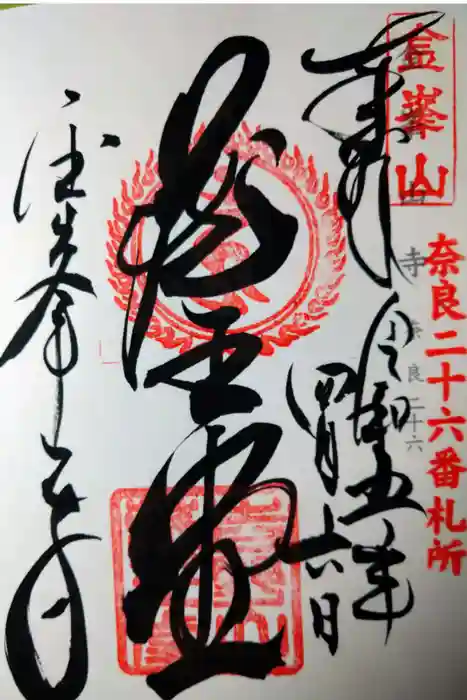 金峯山
奈良二十六番札所
奉拝
令和五年
四月十六日
蔵王堂
金峯山寺